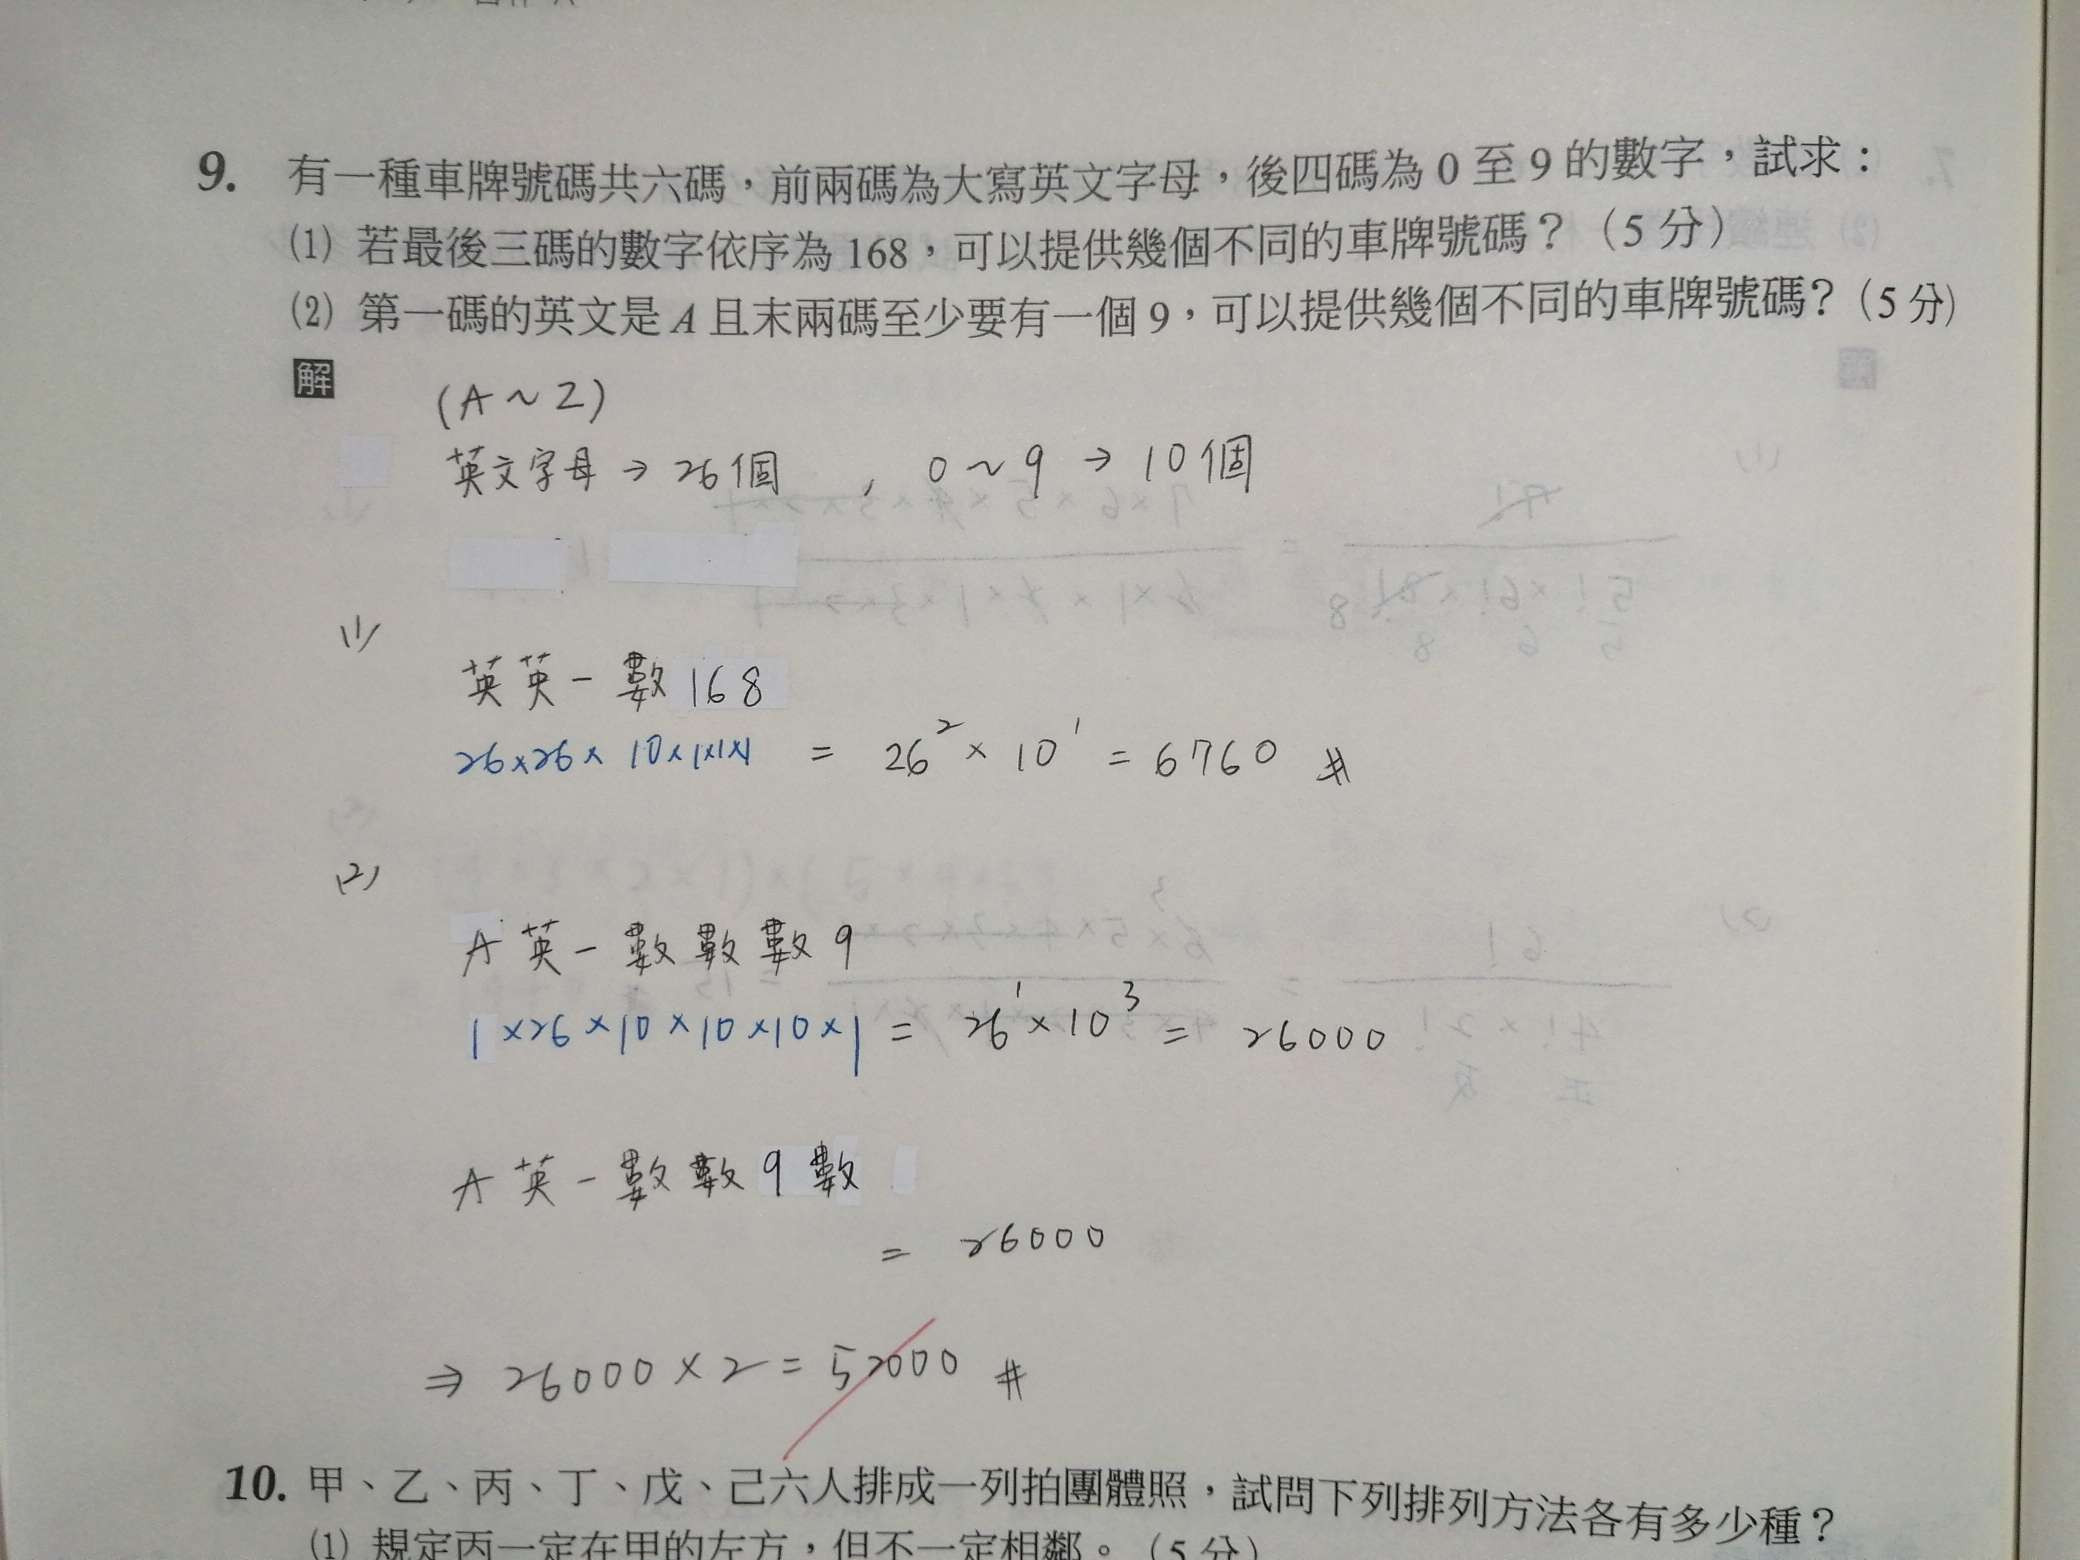 9. 有一種車牌號碼共六碼，前兩碼為大寫英文字母，後四碼為 0 至 9 的數字，試求：
(1) 若最後三碼的數字依序為 168，可以提供幾個不同的車牌號碼？（5 分）
(2) 第一碼的英文是 A 且末兩碼至少要有一個 9，可以提供幾個不同的車牌號碼？（5 分）
解
(A～Z)
英文字母 → 26個 , 0～9 → 10個
(1)
英英－數168
26×26×10×1×1×1 = 26² × 10¹ = 6760 #
(2)
A英－數數數9
1×26×10×10×10×1 = 26¹ × 10³ = 26000
A英－數數9數
= 26000
⇒ 26000 × 2 = 52000 #
10. 甲、乙、丙、丁、戊、己六人排成一列拍團體照，試問下列排列方法各有多少種？
(1) 規定丙一定在甲的左方，但不一定相鄰。（5 分）